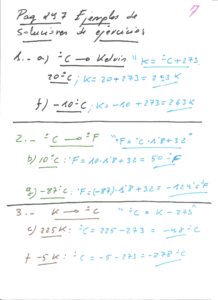 Pag 247 Ejemplos de
Soluciones de ejercicios
7
1.- a) °C → Kelvin "K = °C + 273
20°C; K = 20 + 273 = 293 K
f) -10°C; K = -10 + 273 = 263 K
2.- °C → °F "°F = °C · 1'8 + 32"
b) 10°C: °F = 10 · 1'8 + 32 = 50 °F
g) -87°C: °F = (-87) · 1'8 + 32 = -124'6 °F
3.- K → °C "°C = K - 273"
c) 225K: °C = 225 - 273 = -48°C
f -5K: °C = -5 - 273 = -278°C